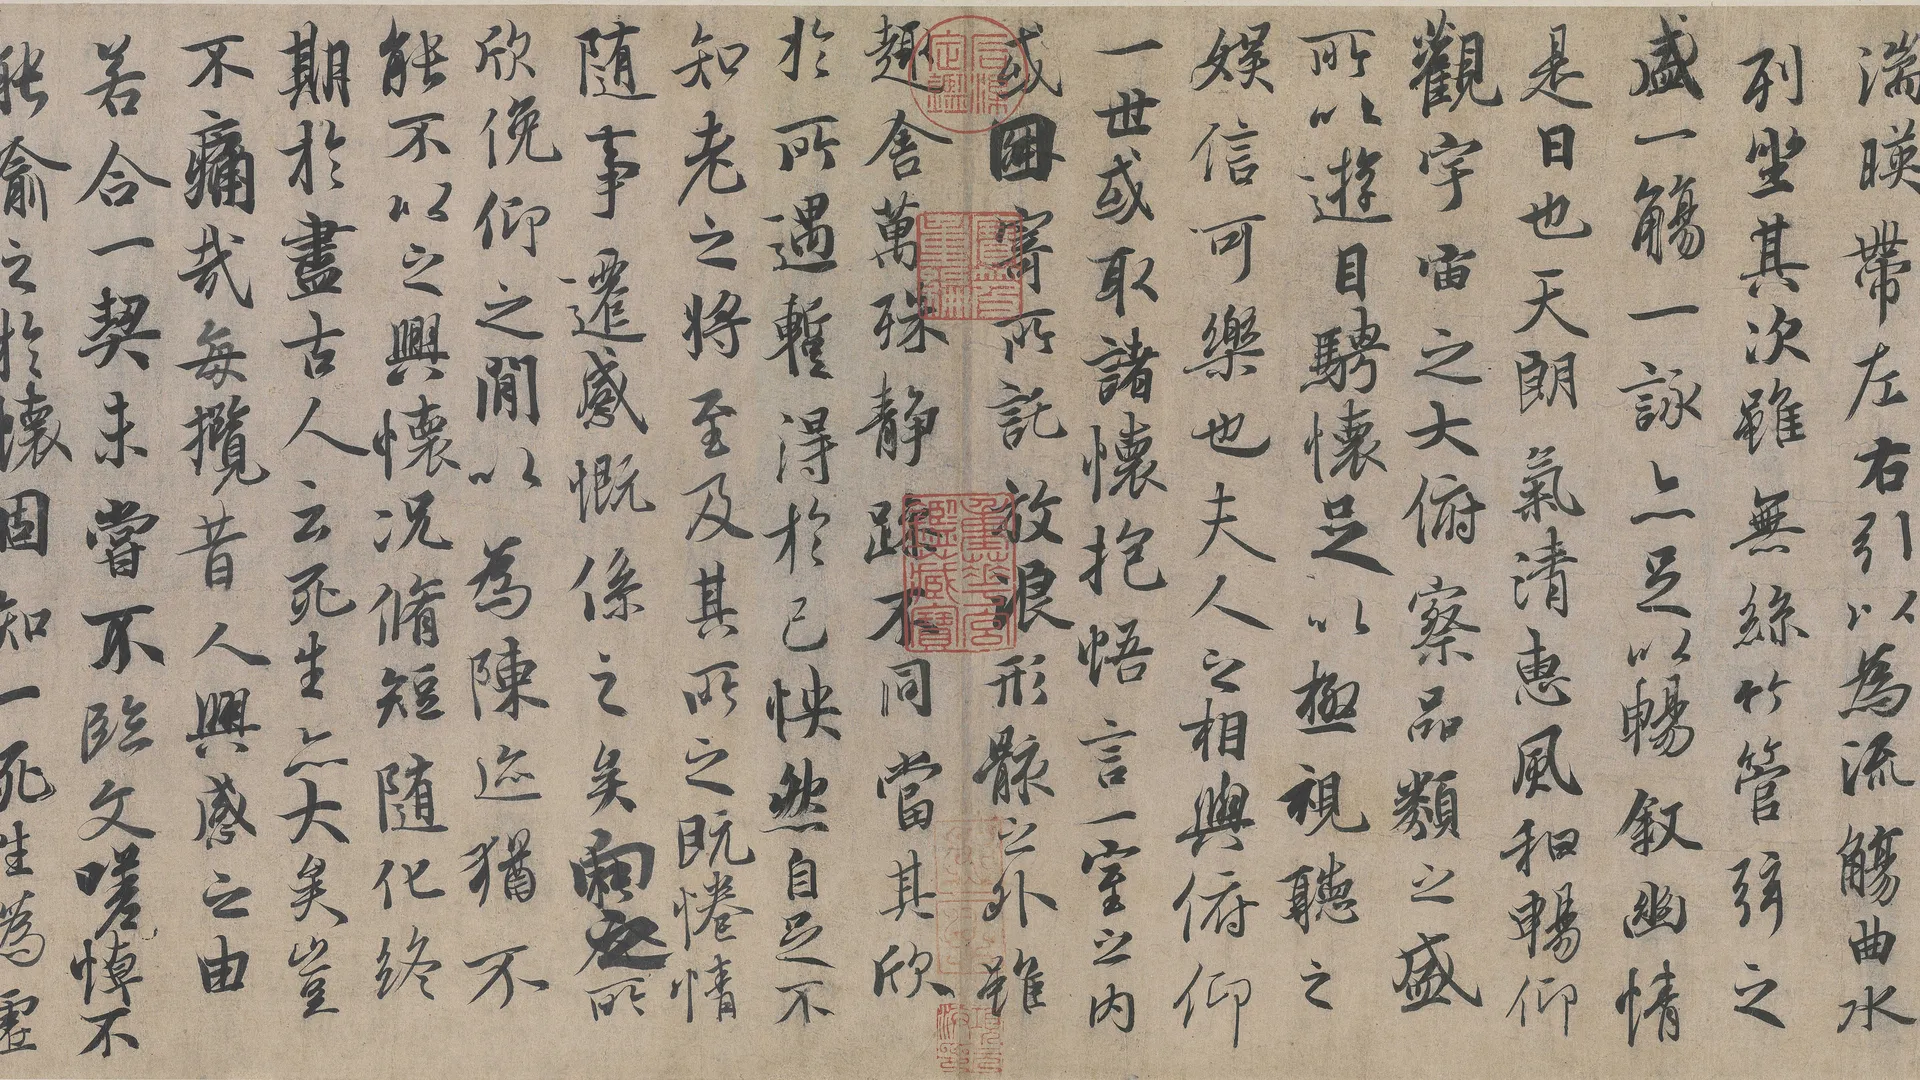 湍暎帶左右引以為流觴曲水
列坐其次雖無絲竹管弦之
盛一觴一詠亦足以暢叙幽情
是日也天朗氣清惠風和暢仰
觀宇宙之大俯察品類之盛
所以遊目騁懷足以極視聽之
娛信可樂也夫人之相與俯仰
一世或取諸懷抱悟言一室之內
或因寄所託放浪形骸之外雖
趣舍萬殊靜躁不同當其欣
於所遇暫得於己怏然自足不
知老之將至及其所之既惓情
隨事遷感慨係之矣向之所
欣俛仰之閒以為陳迹猶不
能不以之興懷況脩短隨化終
期於盡古人云死生亦大矣豈
不痛哉每攬昔人興感之由
若合一契未嘗不臨文嗟悼不
能喻之於懷固知一死生為虛
石渠定鑑
寶笈重編
重華宮鑑藏寶